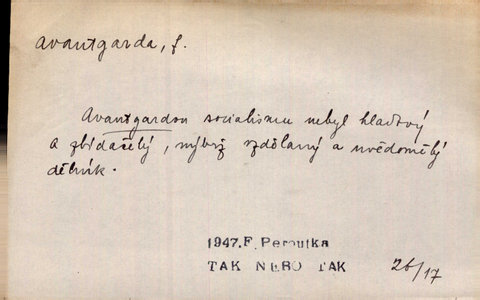 avantgarda, f.
Avantgardou socialismu nebyl hladový
a zbídačelý, nýbrž vzdělaný a uvědomělý
dělník.
1947. F. Peroutka
TAK NEBO TAK
26/17